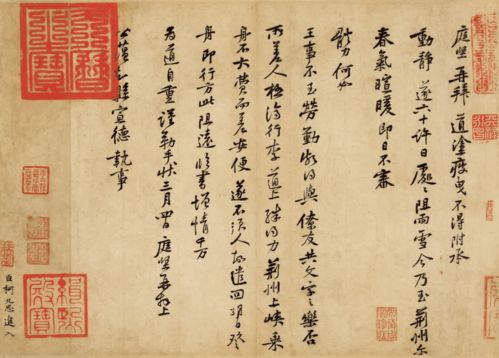 庭堅再拜道塗疲曳不得附承
動靜遂六十許日處〻阻雨雪今乃至荊州爾
春氣暄暖即日不審
體力何如
王事不至勞勤頗得與僚友共文字之樂否
所差人極濟行李道上殊得力荊州上峽乘
舟不大費而差安便遂不須人故遣回明日登
舟即行方此阻遠臨書增情千万
為道自重謹勒手狀三月四日庭堅再拜上
公蘊知縣宣德執事
臣柯九思進入